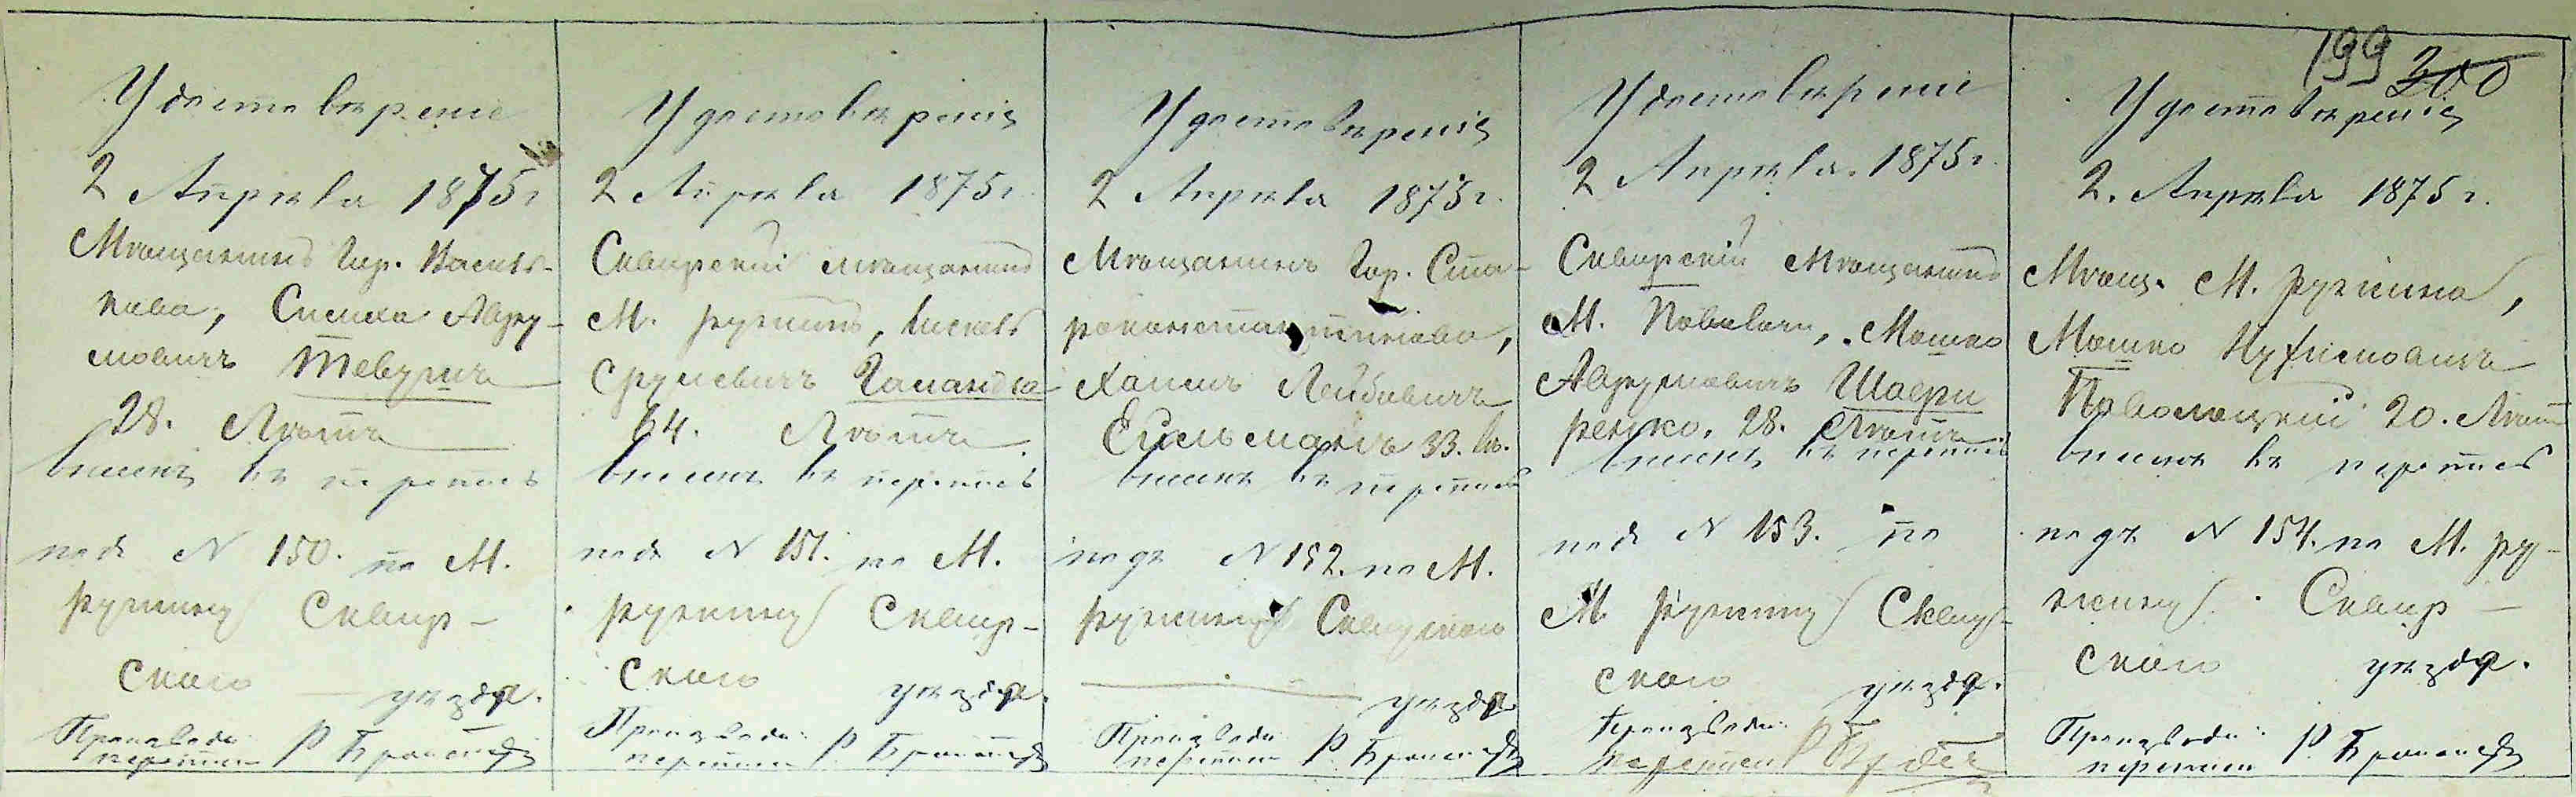 199 300
Удостоверение
2 Апреля 1875 г
Мещанинъ Гор. Василь-
кова, Симха Авру-
мовичъ
28. Летъ
внесенъ въ перепись
подъ N 150. по М.
Ружину Сквир-
скаго уезда.
Производ.
переписи Р.
Удостоверение
2 Апреля 1875 г.
Сквирский мещанинъ
М. Ружинъ,
Сруловичъ
64. Летъ
внесенъ въ перепись
подъ N 151. по М.
Ружину Сквир-
скаго уезда.
Производ.
переписи Р.
Удостоверение
2 Апреля 1875 г.
Мещанинъ Гор. Ста-
роконстантинова,
Хаимъ Лейбовичъ
33. л.
внесенъ въ перепись
подъ N 152. по М.
Ружину Сквирскаго
уезда
Производ.
переписи Р.
Удостоверение
2 Апреля. 1875 г.
Сквирский Мещанинъ
М. Паволочи, Мошко
Аврумовичъ Шафи
ренко, 28. Летъ.
внесенъ въ перепись
подъ N 153. по
М. Ружину Сквир-
скаго уезда.
Производ.
переписи Р.
Удостоверение
2. Апреля 1875 г.
Мещ. М. Ружина,
Мошко Нухимовичъ
Паволоцкий 20. Летъ
внесенъ въ перепись
подъ N 154. по М. Ру-
жину. Сквир-
скаго уезда.
Производ.
переписи Р.